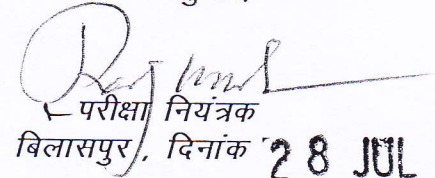 परीक्षा नियंत्रक
बिलासपुर, दिनांक 28 JUL